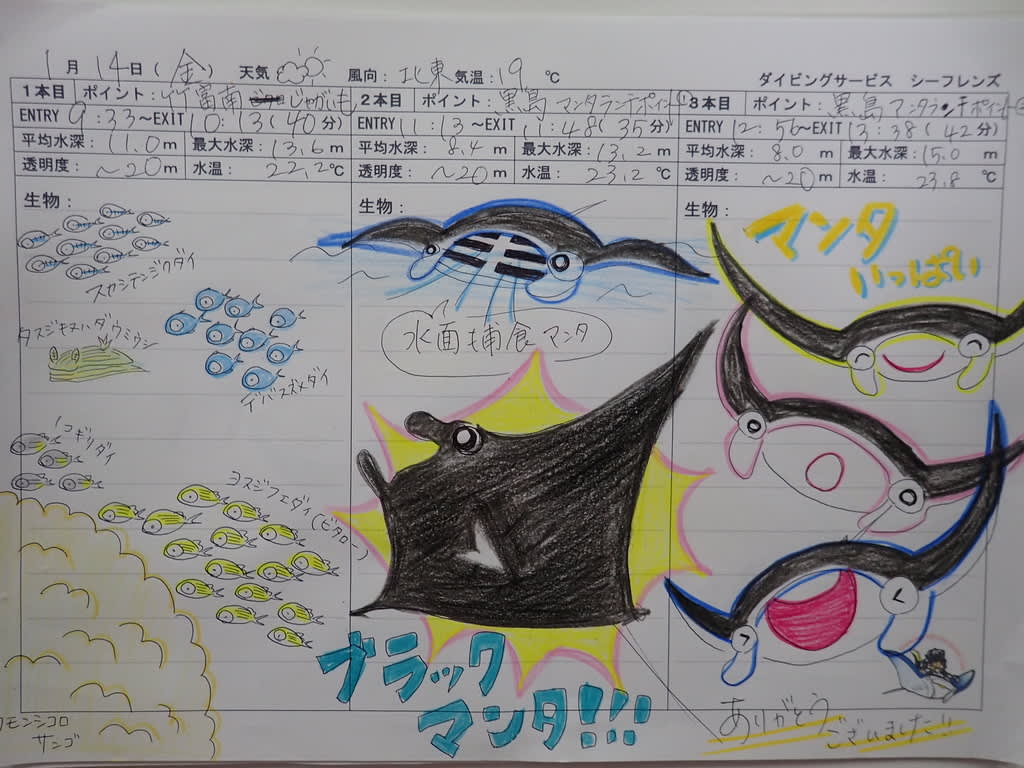 1月14日(金) 天気 風向:北東 気温:19℃ ダイビングサービス シーフレンズ
1本目 ポイント:竹富南 じゃがいも
ENTRY 9:33~EXIT 10:13(40分)
平均水深:11.0m 最大水深:13.6m
透明度:~20m 水温:22.2℃
生物:
スカシテンジクダイ
タスジキヌハダウミウシ
デバスズメダイ
ノコギリダイ
ヨスジフエダイ(ビタロー)
モンシコロ
サンゴ
2本目 ポイント:黒島 マンタランチポイント
ENTRY 11:13~EXIT 11:48(35分)
平均水深:8.4m 最大水深:13.2m
透明度:~20m 水温:23.2℃
生物:
水面捕食マンタ
ブラック
マンタ!!!
3本目 ポイント:黒島 マンタランチポイント
ENTRY 12:56~EXIT 13:38(42分)
平均水深:8.0m 最大水深:15.0m
透明度:~20m 水温:23.8℃
生物:
マンタ
いっぱい
ありがとう
ございました!!